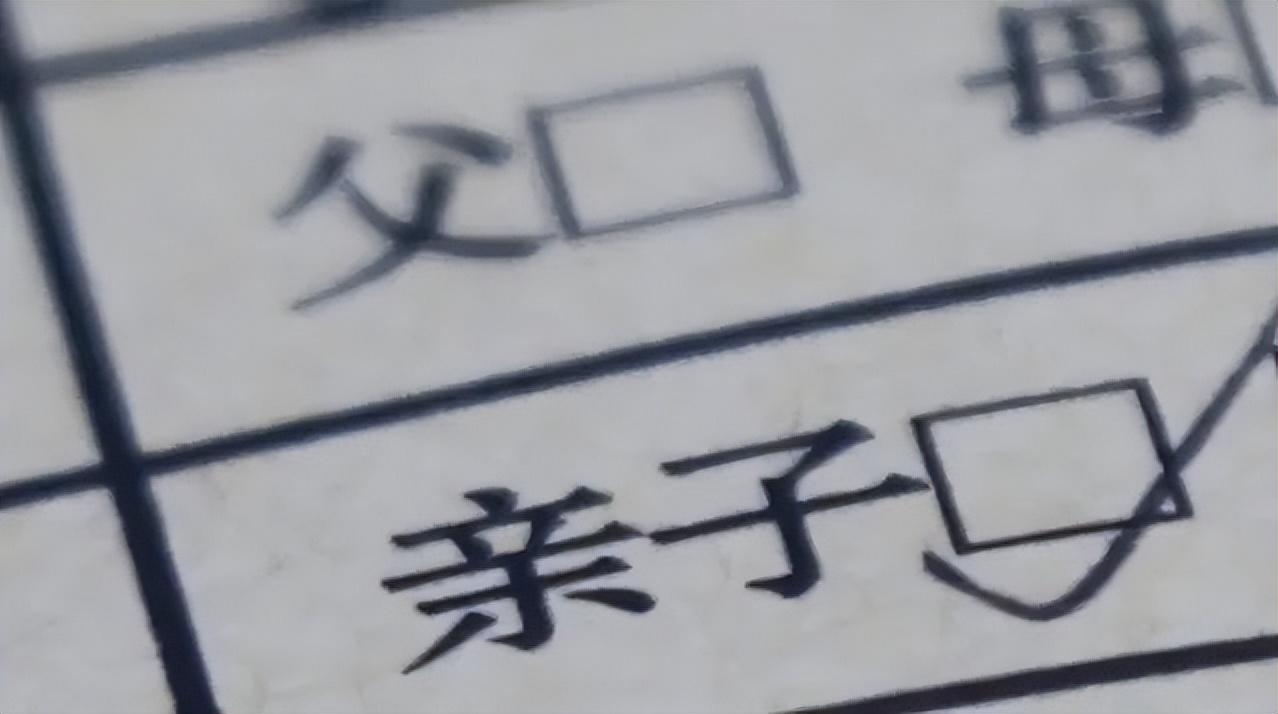 父□ 母
亲子□